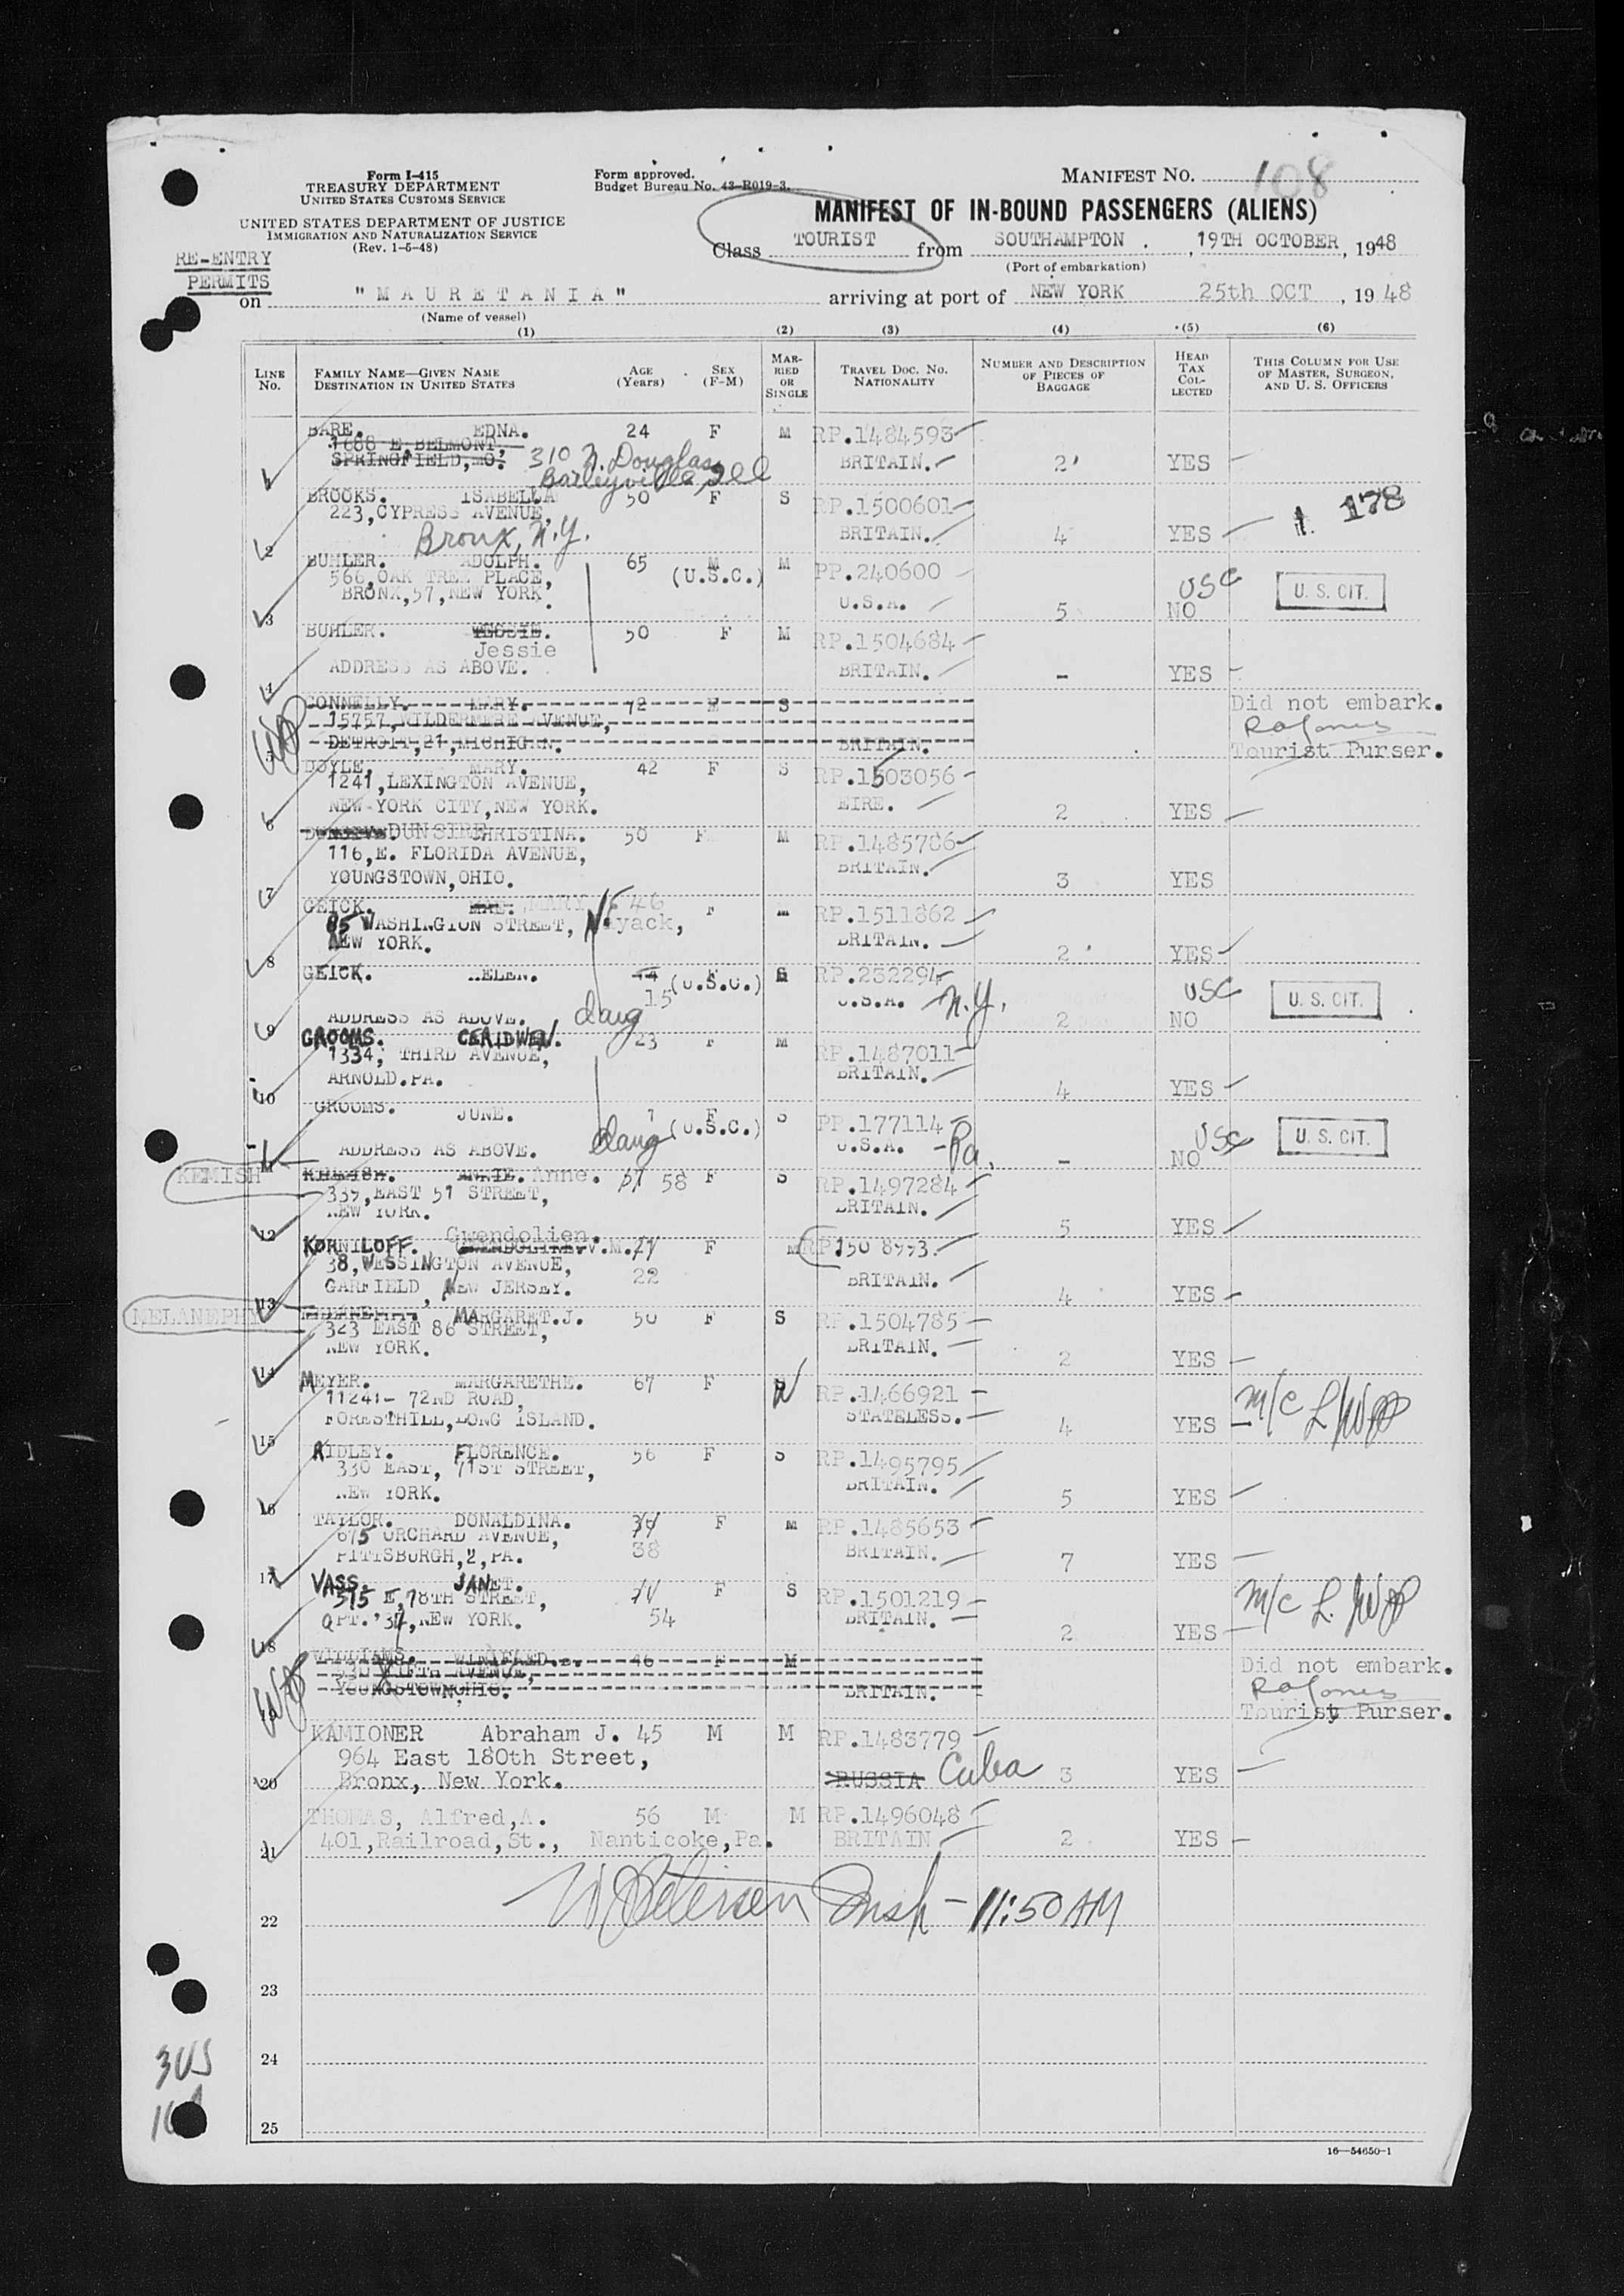 Form I-415
TREASURY DEPARTMENT
UNITED STATES CUSTOMS SERVICE
UNITED STATES DEPARTMENT OF JUSTICE
IMMIGRATION AND NATURALIZATION SERVICE
(Rev. 1-5-48)
Form approved.
Budget Bureau No. 43-R019-3.
MANIFEST NO. 108
MANIFEST OF IN-BOUND PASSENGERS (ALIENS)
Class TOURIST from SOUTHAMPTON , 19TH OCTOBER, 1948
(Port of embarkation)
RE-ENTRY
PERMITS
on "MAURETANIA" arriving at port of NEW YORK 25th OCT , 1948
(Name of vessel)
(1) (2) (3) (4) (5) (6)
LINE No. FAMILY NAME—GIVEN NAME DESTINATION IN UNITED STATES AGE (Years) SEX (F-M) MARRIED OR SINGLE TRAVEL DOC. NO. NATIONALITY NUMBER AND DESCRIPTION OF PIECES OF BAGGAGE HEAD TAX COLLECTED THIS COLUMN FOR USE OF MASTER, SURGEON, AND U. S. OFFICERS
BARE. EDNA. 24 F M RP.1484593
1688 E. BELMONT,
SPRINGFIELD, MO. 310 N. Douglas BRITAIN. 2 YES
1
BROOKS. ISABELLA 50 F S RP.1500601
223, CYPRESS AVENUE, 178
Bronx, N.Y. BRITAIN. 4 YES
2
BUHLER. ADOLPH. 65 M M PP.240600
566, OAK TREE PLACE, (U.S.C.) USC U. S. CIT.
BRONX, 57, NEW YORK. U.S.A. 5 NO
3
BUHLER. 50 F M RP.1504684
Jessie
ADDRESS AS ABOVE. BRITAIN. - YES
4
CONNELLY. MARY. 72 F S Did not embark.
15757, WILDERMERE AVENUE,
DETROIT, 21, MICHIGAN. BRITAIN. Tourist Purser.
5
DOYLE, MARY. 42 F S RP.1503056
1241, LEXINGTON AVENUE,
NEW YORK CITY, NEW YORK. EIRE. 2 YES
6
DUNSIRE CHRISTINA. 50 F M RP.1485786
116, E. FLORIDA AVENUE,
YOUNGSTOWN, OHIO. BRITAIN. 3 YES
7
GEICK. MAE. MARY 46 F M RP.1511862
85 WASHINGTON STREET, Nyack,
NEW YORK. BRITAIN. 2 YES
8
GEICK. HELEN. 15 F (U.S.C.) S RP.232294
U.S.A. N.Y. USC U. S. CIT.
ADDRESS AS ABOVE. daug 2 NO
9
GROOMS. CERIDWEN. 23 F M RP.1487011
1334, THIRD AVENUE,
ARNOLD. PA. BRITAIN. 4 YES
10
GROOMS. JUNE. 1 F (U.S.C.) S PP.177114
ADDRESS AS ABOVE. daug U.S.A. - Pa. - USC NO U. S. CIT.
11
KEMISH ANNIE. Anne. 57 58 F S RP.1497284
339, EAST 57 STREET,
NEW YORK. BRITAIN. 5 YES
12
Gwendolien.
KORNILOFF. V.M. 21 F M RP.150 8993.
38, WESSINGTON AVENUE,
GARFIELD, NEW JERSEY. 22 BRITAIN. 4 YES
13
MELANEPHY MARGARET.J. 50 F S RP.1504785
323 EAST 86 STREET,
NEW YORK. BRITAIN. 2 YES
14
MEYER. MARGARETHE. 67 F W RP.1466921
11241- 72ND ROAD,
FORESTHILL, LONG ISLAND. STATELESS. 4 YES M/C
15
RIDLEY. FLORENCE. 56 F S RP.1495795
330 EAST, 71ST STREET,
NEW YORK. BRITAIN. 5 YES
16
TAYLOR. DONALDINA. F M RP.1485653
675 ORCHARD AVENUE,
PITTSBURGH, 2, PA. 38 BRITAIN. 7 YES
17
VASS. JANET. F S RP.1501219
515 E, 78TH STREET, M/C
54 BRITAIN. 2 YES
18
WILLIAMS. WINIFRED. 46 F M Did not embark.
530 FIFTH AVENUE,
YOUNGSTOWN, OHIO. BRITAIN. Tourist Purser.
19
KAMIONER Abraham J. 45 M M RP.1483779
964 East 180th Street,
Bronx, New York. RUSSIA Cuba 3 YES
20
THOMAS, Alfred, A. 56 M M RP.1496048
401, Railroad, St., Nanticoke, Pa. BRITAIN 2 YES
21
W Petersen Insp - 11:50 AM
22
23
24
25
3 US
16—54650-1